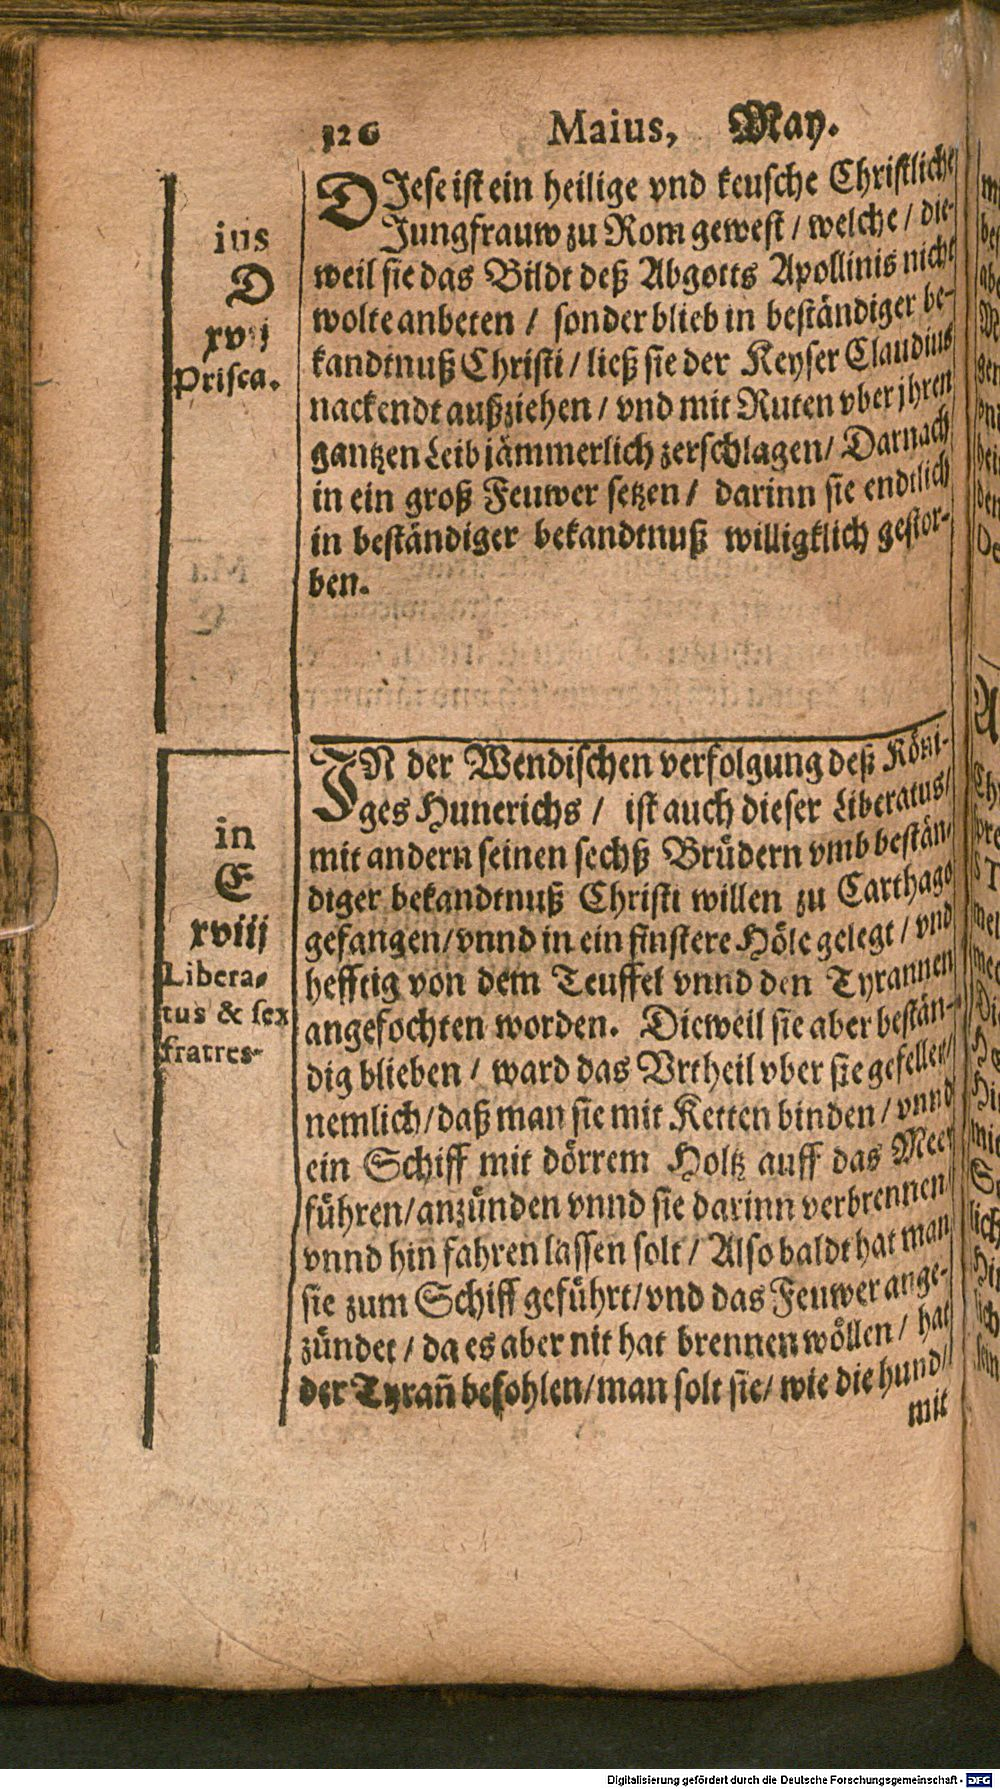 126 Maius, May.
ius
D
xvij
Prisca.
DIese ist ein heilige vnd keusche Christliche
Jungfrauw zu Rom gewest / welche / die-
weil sie das Bildt deß Abgotts Apollinis nicht
wolte anbeten / sonder blieb in beständiger be-
kandtnuß Christi / ließ sie der Keyser Claudius
nackendt außziehen / vnd mit Ruten vber jhren
gantzen Leib jämmerlich zerschlagen / Darnach
in ein groß Feuwer setzen / darinn sie endtlich
in beständiger bekandtnuß willigklich gestor-
ben.
in
E
xviij
Libera-
tus & sex
fratres.
IN der Wendischen verfolgung deß Köni-
ges Hunerichs / ist auch dieser Liberatus /
mit andern seinen sechß Brüdern vmb bestän-
diger bekandtnuß Christi willen zu Carthago
gefangen / vnnd in ein finstere Höle gelegt / vnd
hefftig von dem Teuffel vnnd den Tyrannen
angefochten worden. Dieweil sie aber bestän-
dig blieben / ward das Vrtheil vber sie gefellet /
nemlich / daß man sie mit Ketten binden / vnnd
ein Schiff mit dörrem Holtz auff das Meer
führen / anzünden vnnd sie darinn verbrennen
vnnd hin fahren lassen solt / Also baldt hat man
sie zum Schiff geführt / vnd das Feuwer ange-
zündet / da es aber nit hat brennen wöllen / hat
der Tyrañ befohlen / man solt sie / wie die hund /
mit
Digitalisierung gefördert durch die Deutsche Forschungsgemeinschaft - DFG